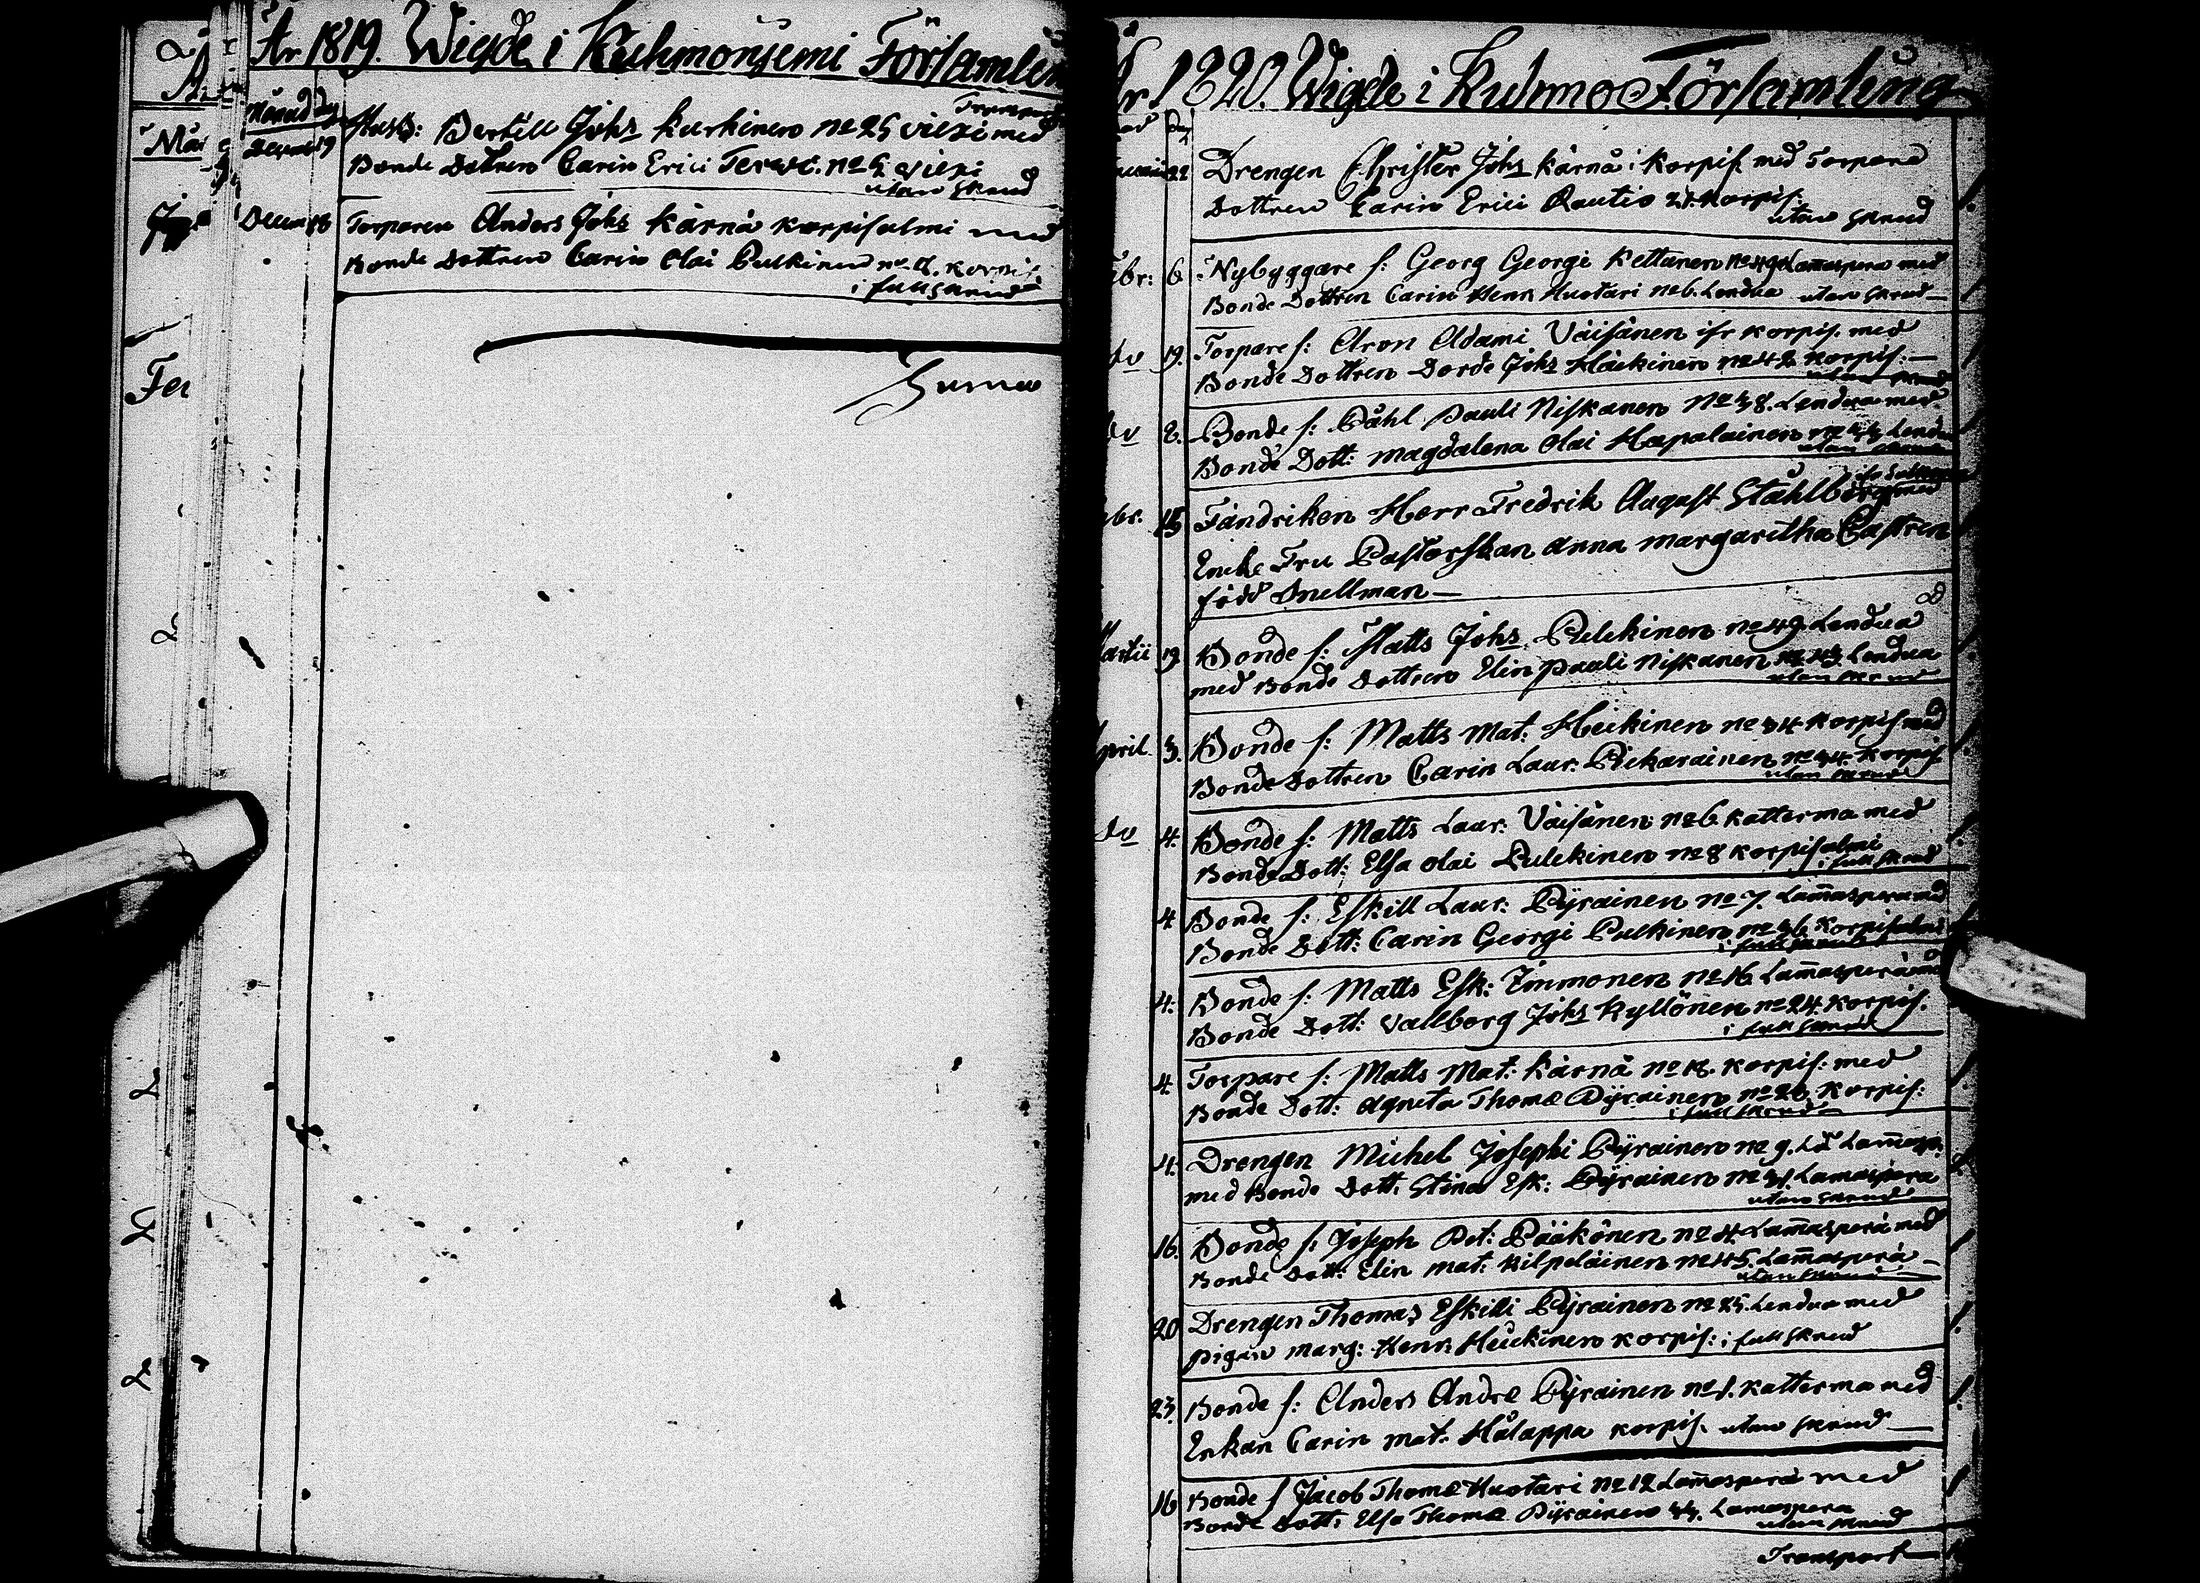 År 1819. Wigde i Kuhmoniemi Församlin
Månad dag
Transport
Decemb 19 Husb: Bertill Johs Kurkinen No 25 Viexi med
Bonde Dottren Carin Erici Terwo. No 5 Viexi
utan skrud
Decem 28 Torparen Anders Johs Kärnä Korpisalmi med
Bonde Dottren Carin Olai Pulkinen No 2. Korpis.
i full skrud
Summa
Mår
Fer
År 1820. Wigde i Kuhmo Församling
22 Drengen Christer Johs Kärnä i Korpis. med Torpare
Dottren Carin Erici Rautio 21. Korpis.
utan skrud
Febr: 6 Nybyggare s: Georg Georgi Kettunen No 49 Lammasperä med
Bonde Dottren Carin Henr: Huotari No 6. Lendua utan skrud
do 19. Torpare s: Aron Adami Väisänen ifr Korpis. med
Bonde Dottren Dorde Johs Häikinen No 42 Korpis.
utan skrud
do 2. Bonde s: Påhl Pauli Niskanen No 38. Lendua med
Bonde Dott: Magdalena Olai Hapalainen No 33 Lendua
utan skrud
15 Fändriken Herr Fredrik August Ståhlberg med
Enke Fru Pastorskan Anna Margaretha Castren
född Snellman
Martii 19 Bonde s: Matts Johs Pulckinen No 49. Lendua
med Bonde Dottren Elin Pauli Niskanen Lendua
utan skrud
April 3. Bonde s: Matts Mat: Heikinen No 34 Korpis med
Bonde Dottren Carin Laur: Pickarainen No 34. Korpis
utan skrud
do 4. Bonde s: Matts Laur: Väisänen No 6 Katterma med
Bonde Dott: Elsa Olai Pulckinen No 8 Korpisalmi
i full skrud
4 Bonde s: Eskill Laur: Pyrainen No 7. Lammasperä med
Bonde Dott: Carin Georgi Pulkinen No 36 Korpisalmi
i full skrud
4. Bonde s: Matts Esk: Immonen No 16 Lammasperä med
Bonde Dott: Vallborg Johs Kyllönen No 24 Korpis.
i full skrud
4. Torpare s: Matts Mat: Kärnä No 18. Korpis. med
Bonde Dott: Agneta Thomæ Pyrainen No 20. Korpis:
i full skrud
4. Drengen Michel Josephi Pyrainen No 9. Lammasp:
med Bonde Dott: Stina Esk: Pyrainen No 31. Lamasperä
utan skrud
16. Bonde s: Joseph Pet: Pääkönen No 4 Lammasperä med
Bonde Dott: Elin Mat: Kilpeläinen No 45. Lammasperä
utan skrud
20 Drengen Thomas Eskilli Pyrainen No 25. Lendua med
Pigan Marg: Henr: Heickinen Korpis: i full skrud
23. Bonde s: Anders Andræ Pyrainen No 1. Katterma med
Enkan Carin Mat: Hålappa Korpis. utan skrud
16 Bonde s Jacob Thomæ Huotari No 12 Lammasperä med
Bonde Dott: Elsa Thomæ Pyrainen 33. Lamasperä
utan skrud
Transport